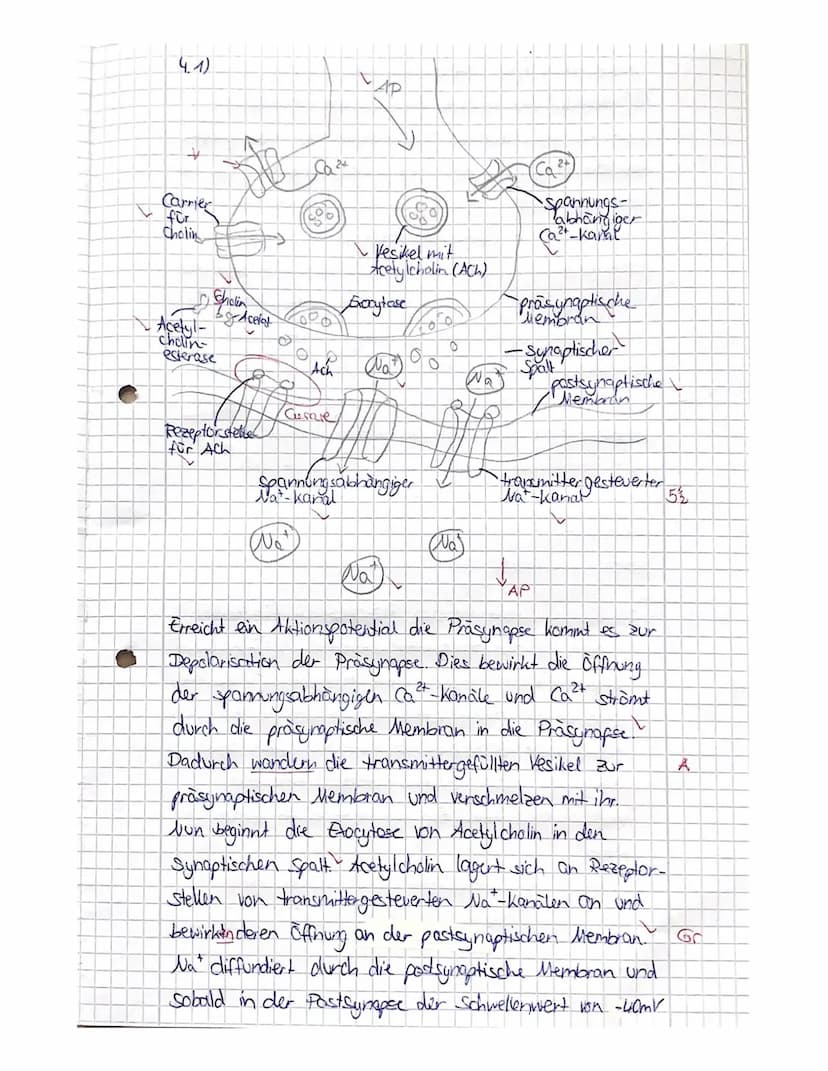 4.1)
AP
Ca²⁺
Ca²⁺
Carrier
für
Cholin
spannungs-
abhängiger
Ca²⁺-Kanal
Vesikel mit
Acetylcholin (ACh)
Cholin
Acetat
Exocytose
präsynaptische
Membran
Acetyl-
cholin-
esterase
Ach
Na⁺
Na⁺
synaptischer
Spalt
postsynaptische
Membran
Curare
Rezeptorstelle
für ACh
spannungsabhängiger
Na⁺-Kanal
transmittergesteuerter
Na⁺-Kanal
5½
Na⁺
Na⁺
Na⁺
AP
Erreicht ein Aktionspotential die Präsynapse kommt es zur
Depolarisation der Präsynapse. Dies bewirkt die Öffnung
der spannungsabhängigen Ca²⁺-Kanäle und Ca²⁺ strömt
durch die präsynaptische Membran in die Präsynapse.
Dadurch wandern die transmittergefüllten Vesikel zur A
präsynaptischen Membran und verschmelzen mit ihr.
Nun beginnt die Exocytose von Acetylcholin in den
synaptischen Spalt. Acetylcholin lagert sich an Rezeptor-
stellen von transmittergesteuerten Na⁺-Kanälen an und
bewirken deren Öffnung an der postsynaptischen Membran. Gr
Na⁺ diffundiert durch die postsynaptische Membran und
sobald in der Postsynapse der Schwellenwert von -40mV